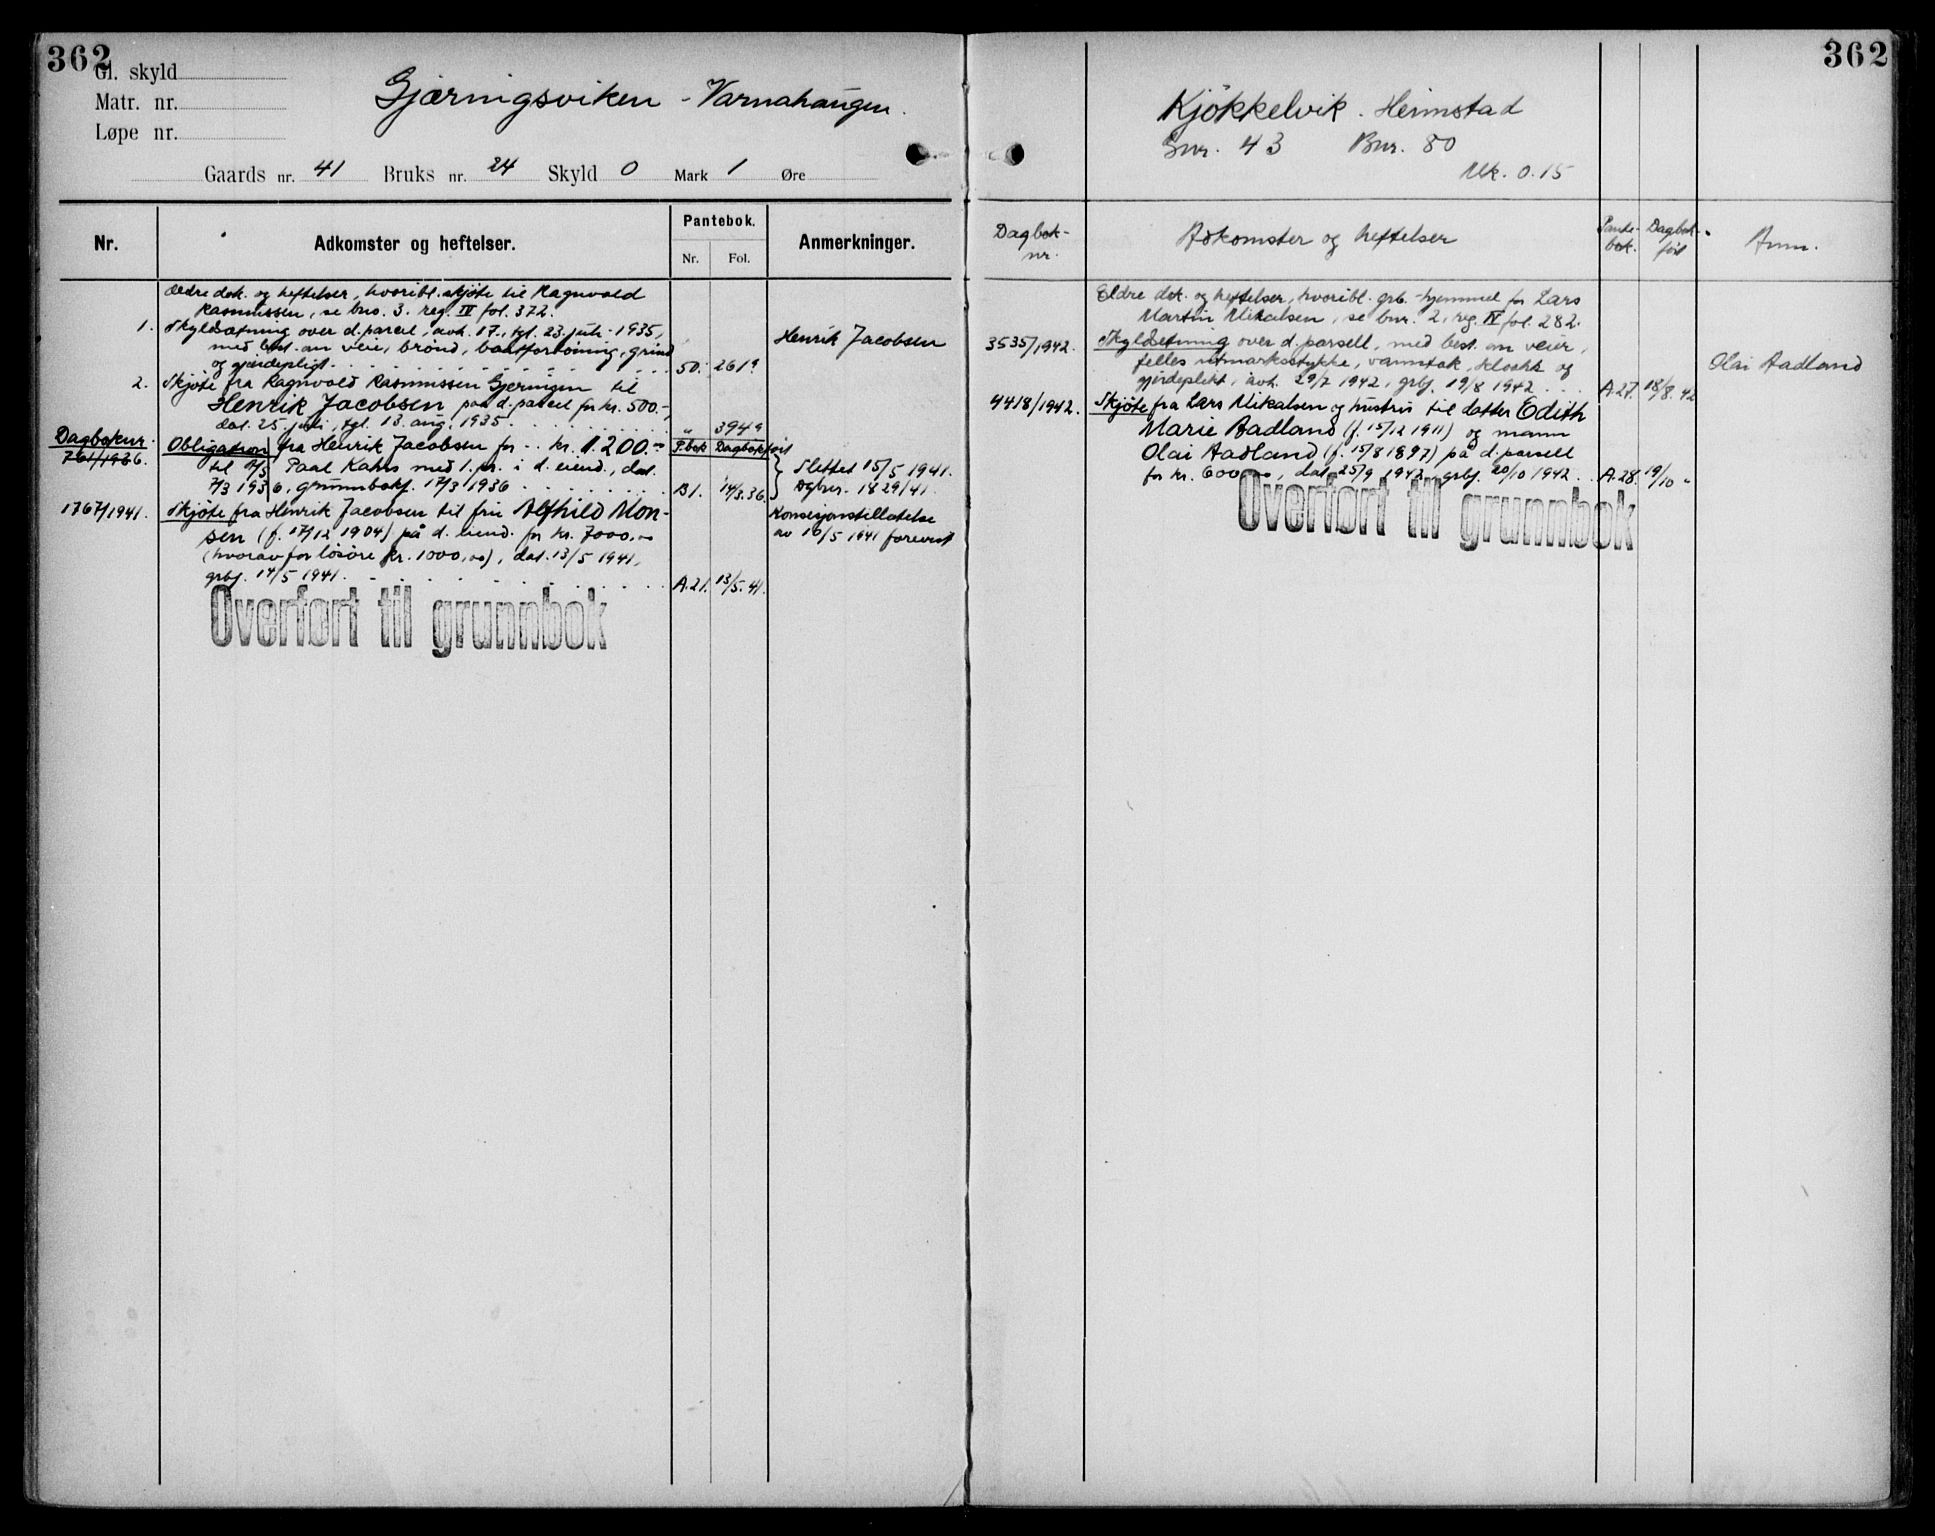 362
Gl. skyld
Matr. nr.
Løpe nr.
Gjærningsviken - Varnahaugen.
Gaards nr. 41 Bruks nr. 24 Skyld 0 Mark 1 Øre
Nr.
Adkomster og heftelser.
Pantebok.
Nr. Fol.
Anmerkninger.
Ældre dok. og heftelser, hvoribl. skjøte til Ragnvald
Rasmussen, se bno. 3. reg. IV fol. 372.
1. Skyldsætning over d. parcel, avh. 17., tgl. 23. juli 1935,
med best. om veie, brønd, baatfortøining, grind
og gjærdepligt 50. 261a
Henrik Jacobsen
2. Skjøte fra Ragnvald Rasmussen Gjerningen til
Henrik Jacobsen paa d. parcel for kr. 500.-,
dat. 25 juli, tgl. 13. aug. 1935. " 394a
Dagboknr. Obligation fra Henrik Jacobsen for kr. 1.200.- P.bok Dagbokført
761/1936. til A/S Paal Kahrs med 1. pr. i d. eiend., dat.
7/3 1936, grunnbokf. 17/3 1936 B1. 14/3.36.
Slettet 15/5 1941.
Dgbnr. 1829/41.
1767/1941. Skjøte fra Henrik Jacobsen til fru Alfhild Mon-
sen (f. 17/12 1904) på d. eiend. for kr. 7000,00
(hvorav for løsøre kr. 1000,00), dat. 13/5 1941,
grbf. 14/5 1941. A.21. 13/5.41.
Konsesjonstillatelse
av 10/5 1941 forevist
Overført til grunnbok
362
Kjøkkelvik. Heimstad
Gnr. 43 Bnr. 80
Mk. 0.15
Dagbok-
nr.
Adkomster og heftelser
Pante-
bok.
Dagbok-
ført
Anm.
Eldre dok. og heftelser, hvoribl. grb.-hjemmel for Lars
Martin Mikalsen, se bnr. 2, reg. IV fol. 282.
3535/1942. Skyldsetning over d. parsell, med best. om veier,
felles utmarksstykke, vanntak, kloakk og
gjerdeplikt, avh. 29/7 1942, grbf. 19/8 1942 A.27. 18/8.42
Olai Aadland
4418/1942. Skjøte fra Lars Mikalsen og hustru til datter Edith
Marie Aadland (f. 15/12 1911) og mann
Olai Aadland (f. 15/8 1897) på d. parsell
for kr. 600,00, dat. 25/9 1942, grbf. 20/10 1942 A.28. 19/10 "
Overført til grunnbok